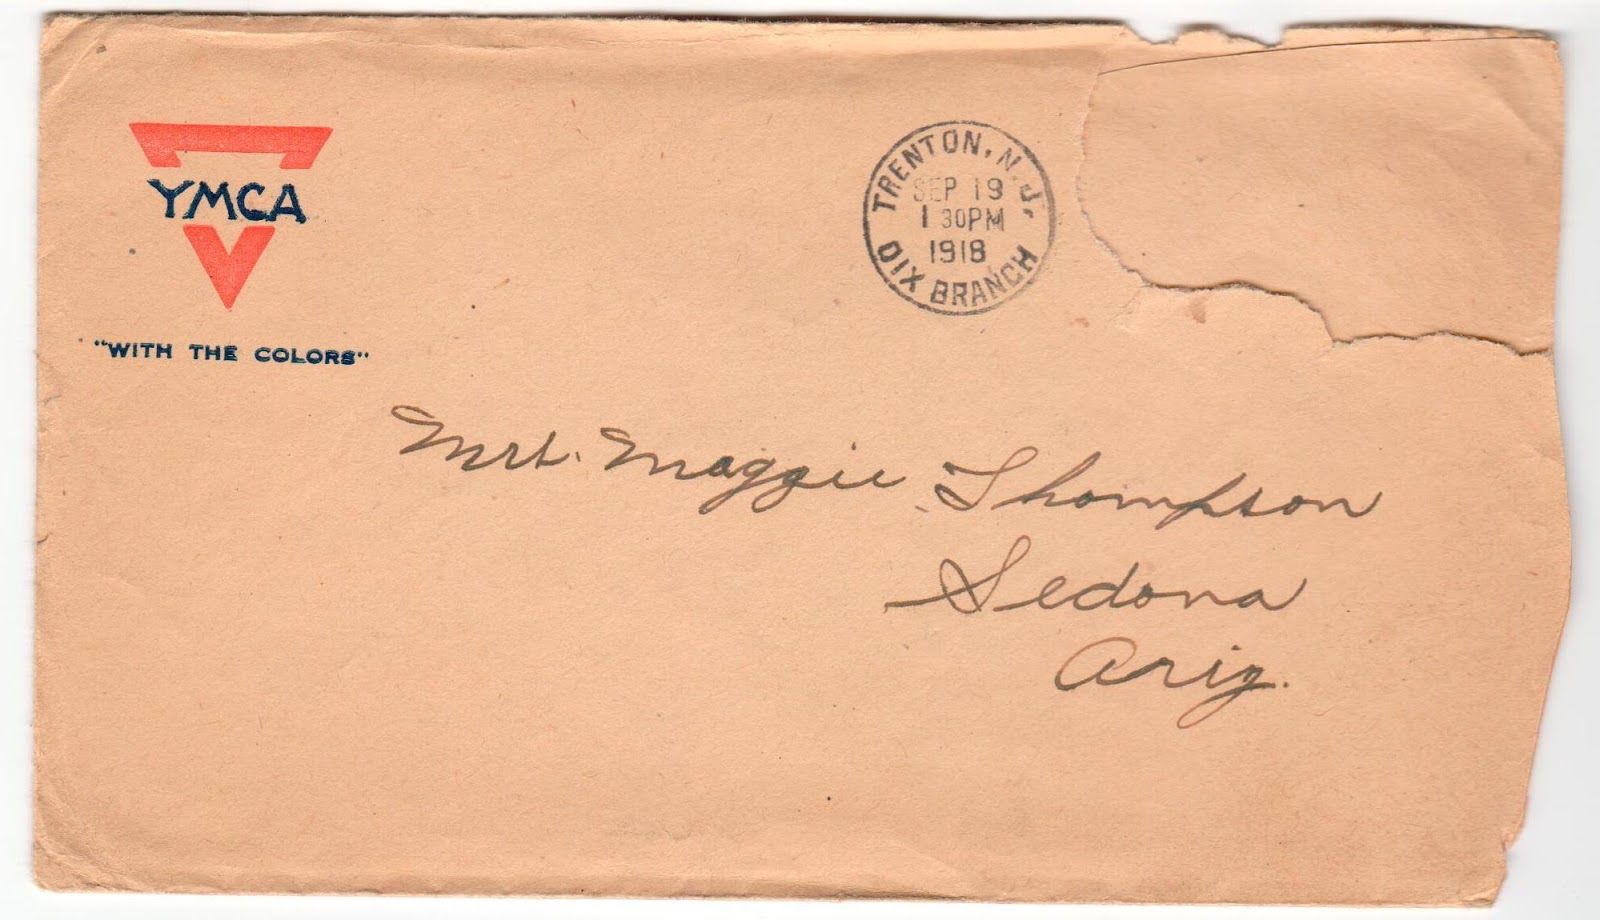 YMCA
"WITH THE COLORS"
TRENTON, N.J.
SEP 19
1 30PM
1918
DIX BRANCH
Mrs. Maggie Thompson
Sedona
Ariz.